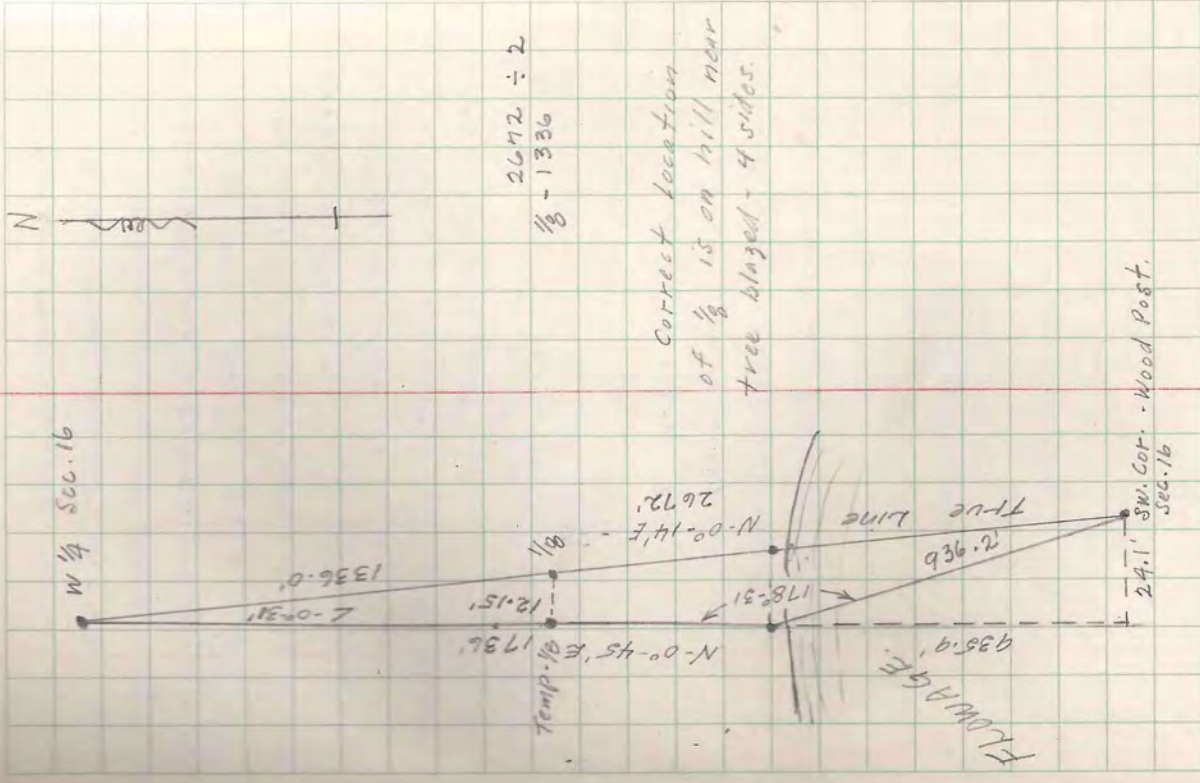 N
W 1/4 Sec. 16
2672 ÷ 2
1/8 - 1336
Correct Location
of 1/8 is on hill near
tree blazed - 4 sides.
1336.0'
∠-0°-31'
12.15'
1/8
Temp. 1/8
1736'
N-0°-45'E
N-0°-14'E
2672'
178°-31'
True Line
936.2'
935.9'
FLOWAGE.
24.1'
SW. Cor. - Wood Post.
Sec. 16